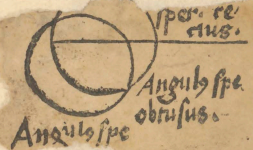 sper. re
ctus.
Angulꝰ spe
obtusus.
Angulꝰ spe